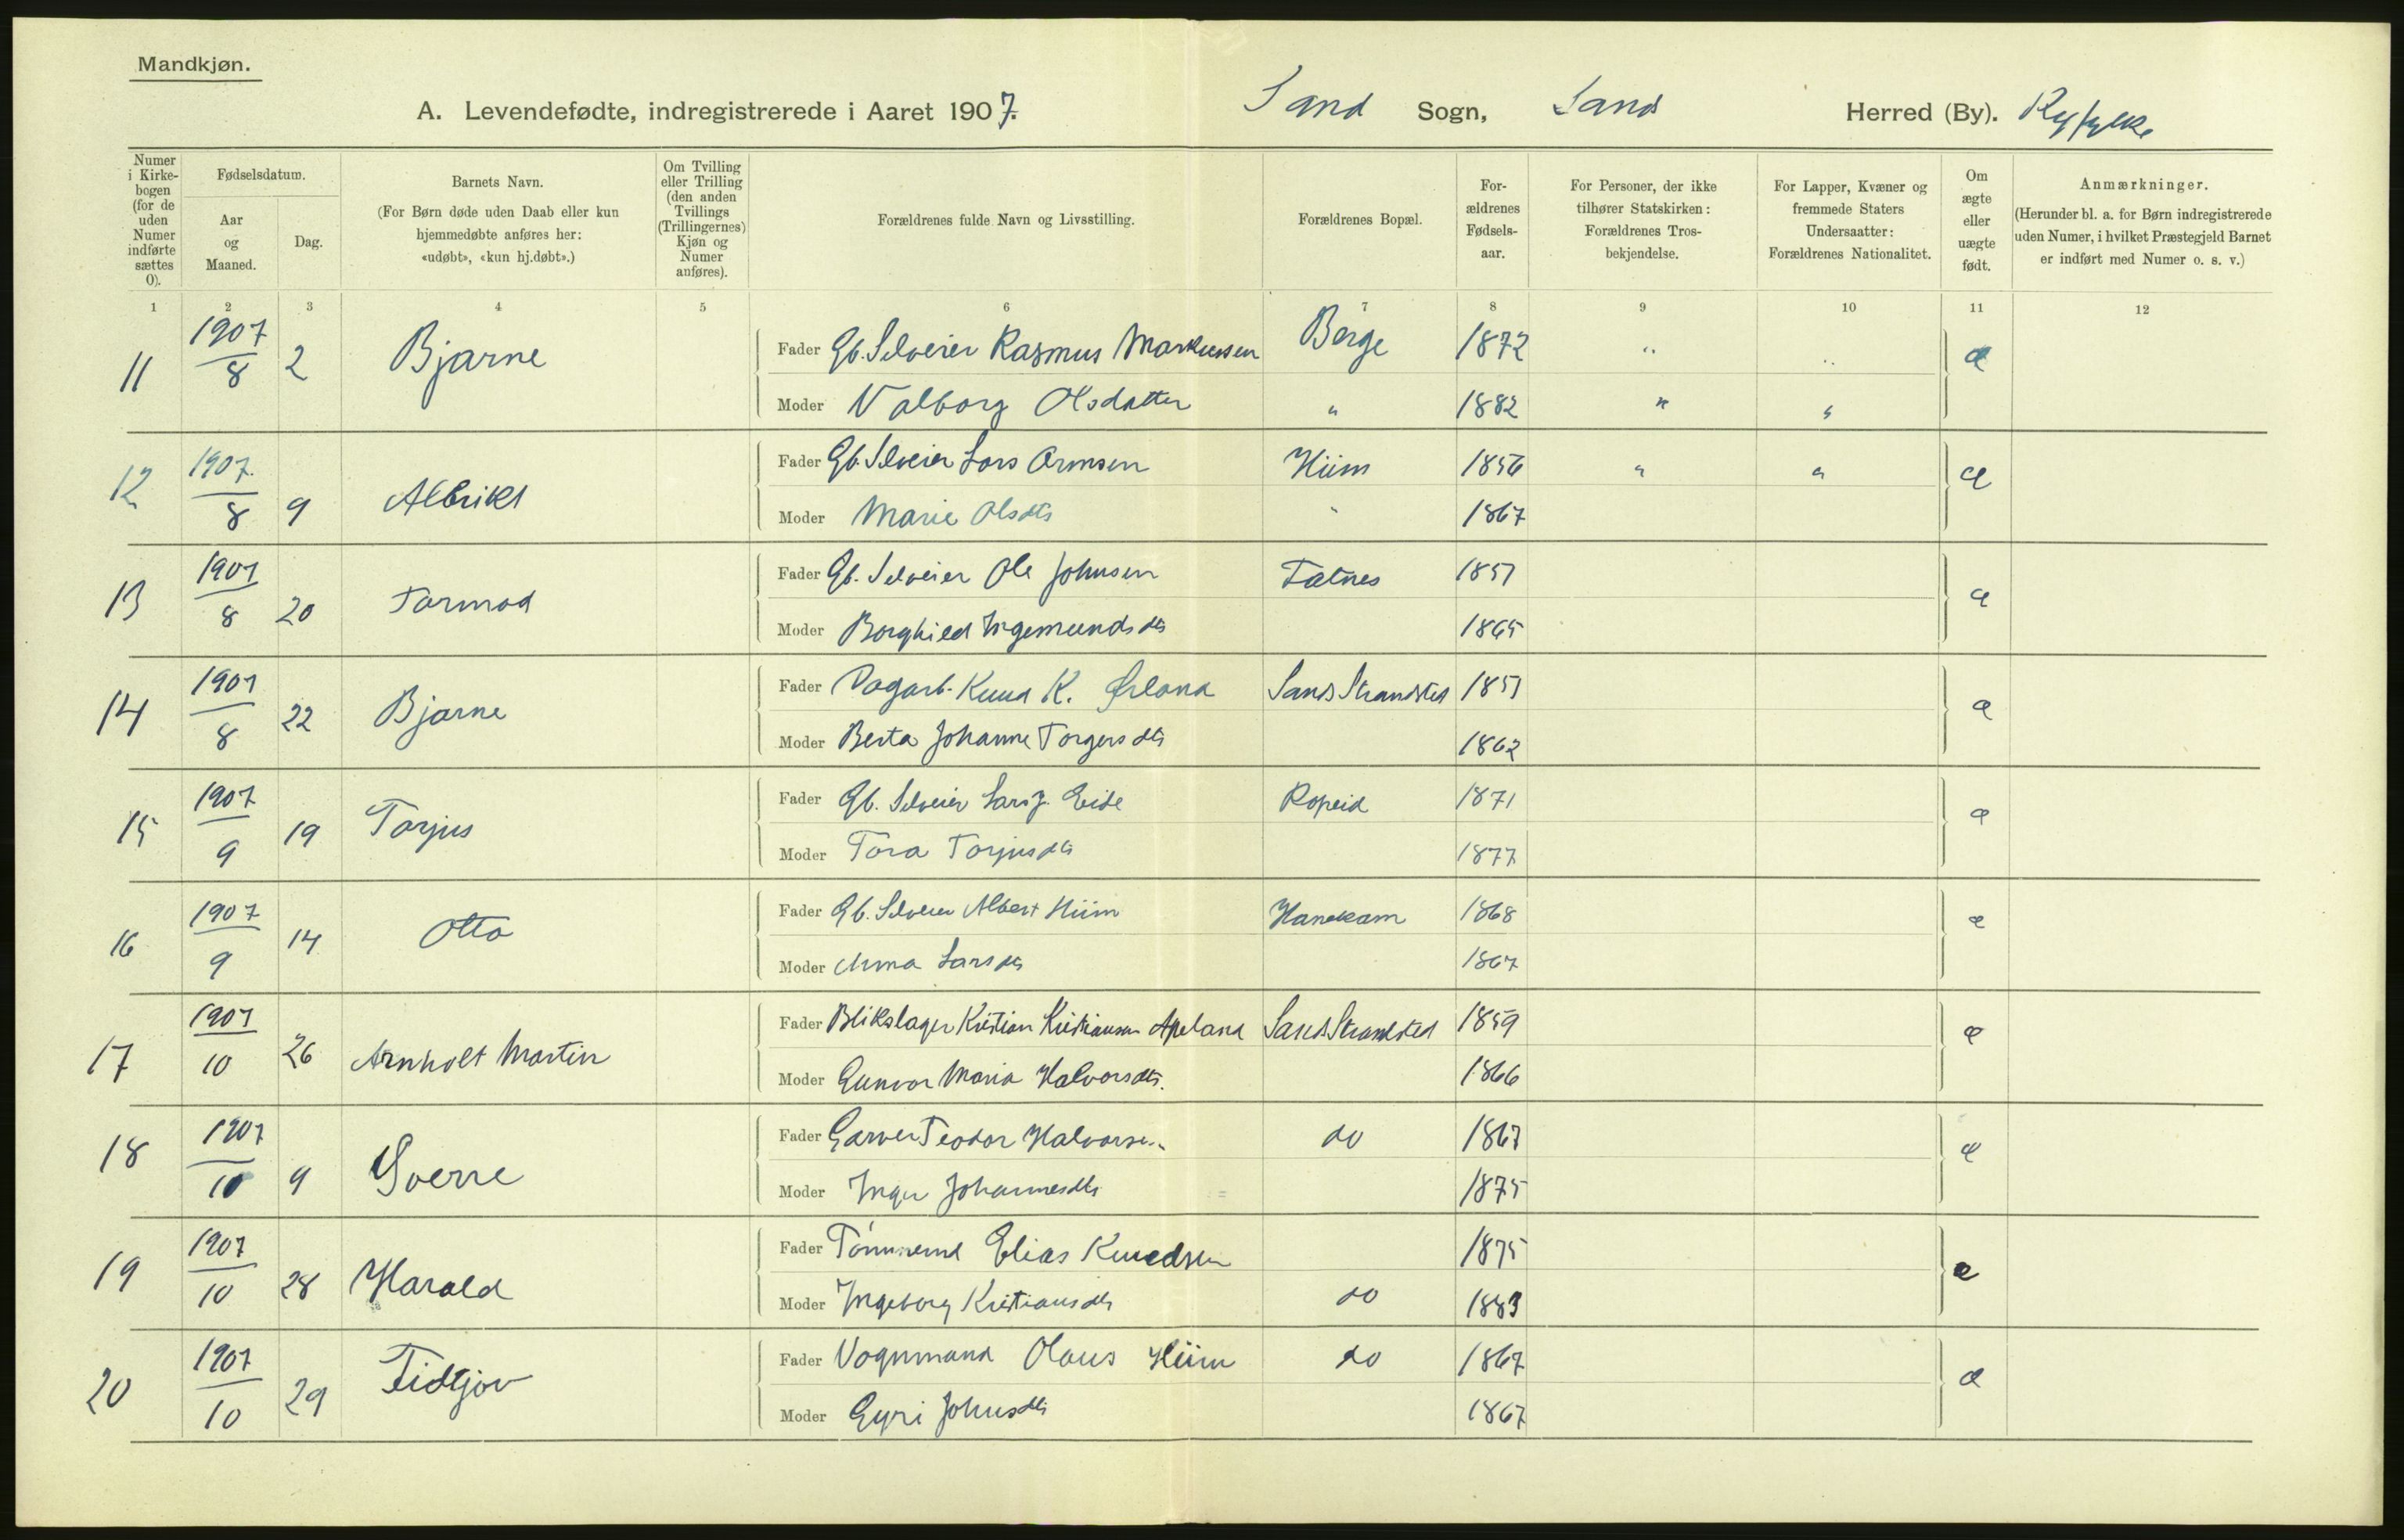 Mandkjøn.
A. Levendefødte, indregistrerede i Aaret 1907. Sand Sogn, Sand Herred (By). Ryfylke
Numer i Kirkebogen (for de uden Numer indførte sættes 0). Fødselsdatum. Aar og Maaned. Dag. Barnets Navn. (For Børn døde uden Daab eller kun hjemmedøbte anføres her: «udøbt», «kun hj.døbt».) Om Tvilling eller Trilling (den anden Tvillings (Trillingernes) Kjøn og Numer anføres). Forældrenes fulde Navn og Livsstilling. Forældrenes Bopæl. For-ældrenes Fødsels-aar. For Personer, der ikke tilhører Statskirken: Forældrenes Tros-bekjendelse. For Lapper, Kvæner og fremmede Staters Undersaatter: Forældrenes Nationalitet. Om ægte eller uægte født. Anmærkninger. (Herunder bl. a. for Børn indregistrerede uden Numer, i hvilket Præstegjeld Barnet er indført med Numer o. s. v.)
1 2 3 4 5 6 7 8 9 10 11 12
11 1907/8 2 Bjarne Fader Gb. Selveier Rasmus Markussen Berge 1872 " " æ
Moder Valborg Olsdatter " 1882 " "
12 1907/8 9 Albrikt Fader Gb. Selveier Lars Ormsen Hiim 1856 " " æ
Moder Marie Olsdtr " 1867
13 1907/8 20 Tormod Fader Gb. Selveier Ole Johnsen Fatnes 1857 æ
Moder Borghild Ingemundsdtr 1865
14 1907/8 22 Bjarne Fader Dagarb. Knud K. Ørland Sands Strandsted 1857 æ
Moder Berta Johanne Torgersdtr 1862
15 1907/9 19 Torjus Fader Gb. Selveier Lars J. Eide Ropeid 1871 æ
Moder Tora Torjusdtr 1877
16 1907/9 14 Otto Fader Gb. Selveier Albert Hiim Hanekam 1868 æ
Moder Anna Larsdtr 1867
17 1907/10 26 Arnholt Martin Fader Blikslager Kristian Kristiansen Apeland Sands Strandsted 1859 æ
Moder Gunvor Maria Halvorsdtr. 1866
18 1907/10 9 Sverre Fader Garver Teodor Halvorsen do 1867 æ
Moder Inger Johannesdtr 1875
19 1907/10 28 Harald Fader Tømmermd Elias Knudsen 1875 æ
Moder Ingeborg Kristiansdtr do 1883
20 1907/10 29 Fidtjov Fader Vognmand Olaus Hiim do 1867 æ
Moder Gyri Johnsdtr 1867